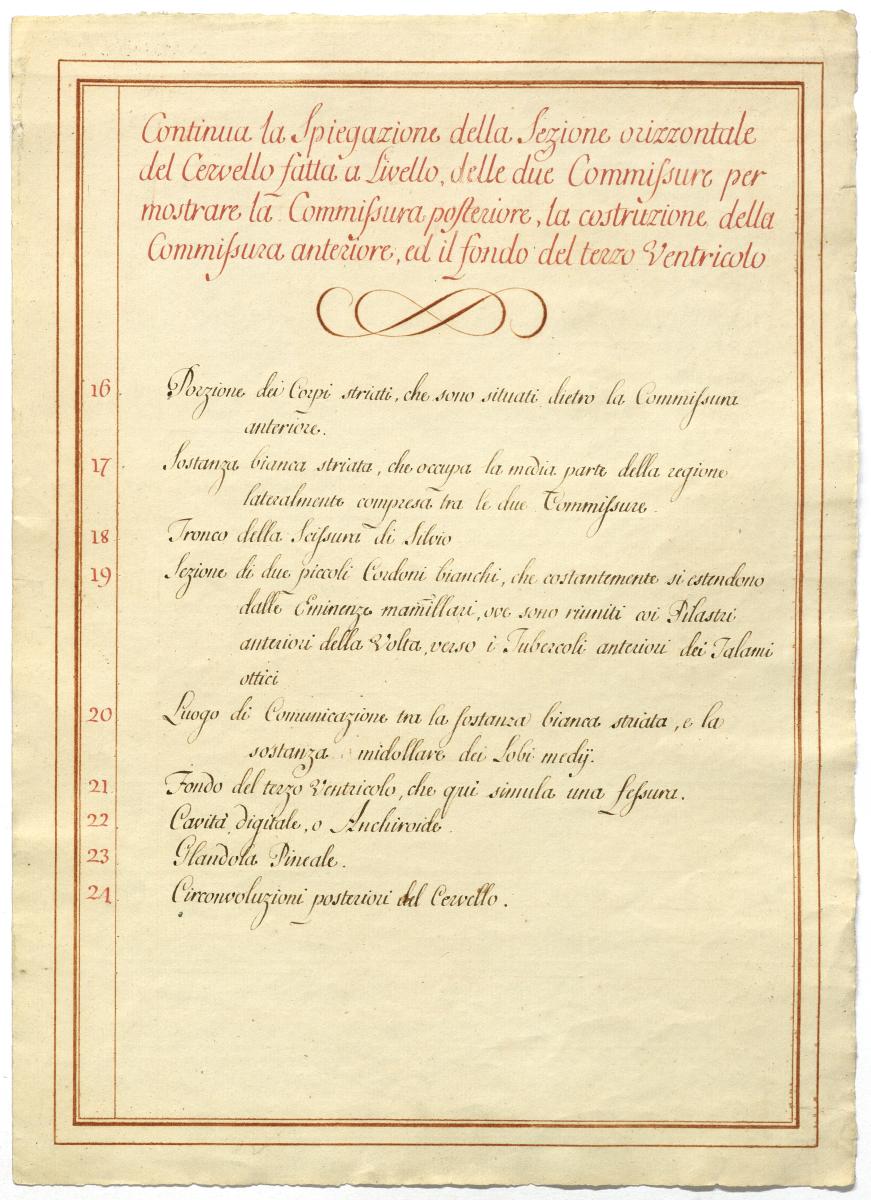 Continua la Spiegazione della Sezione orizzontale
del Cervello fatta a Livello, delle due Commiſsure per
mostrare la Commiſsura poſteriore, la costruzione della
Commiſsura anteriore, ed il fondo del terzo Ventricolo
16 Porzione dei Corpi striati, che sono situati dietro la Commiſsura
anteriore.
17 Sostanza bianca striata, che occupa la media parte della regione
lateralmente compresa tra le due Commiſsure.
18 Tronco della Sciſsura di Silvio
19 Sezione di due piccoli Cordoni bianchi, che costantemente si estendono
dalle Eminenze mamillari, ove sono riuniti coi Pilastri
anteriori della Volta, verso i Tubercoli anteriori dei Talami
ottici
20 Luogo di Comunicazione tra la sostanza bianca striata, e la
sostanza midollare dei Lobi medij.
21 Fondo del terzo Ventricolo, che qui simula una feſsura.
22 Cavità digitale, o Anchiroide.
23 Glandola Pineale.
24 Circonvoluzioni posteriori del Cervello.